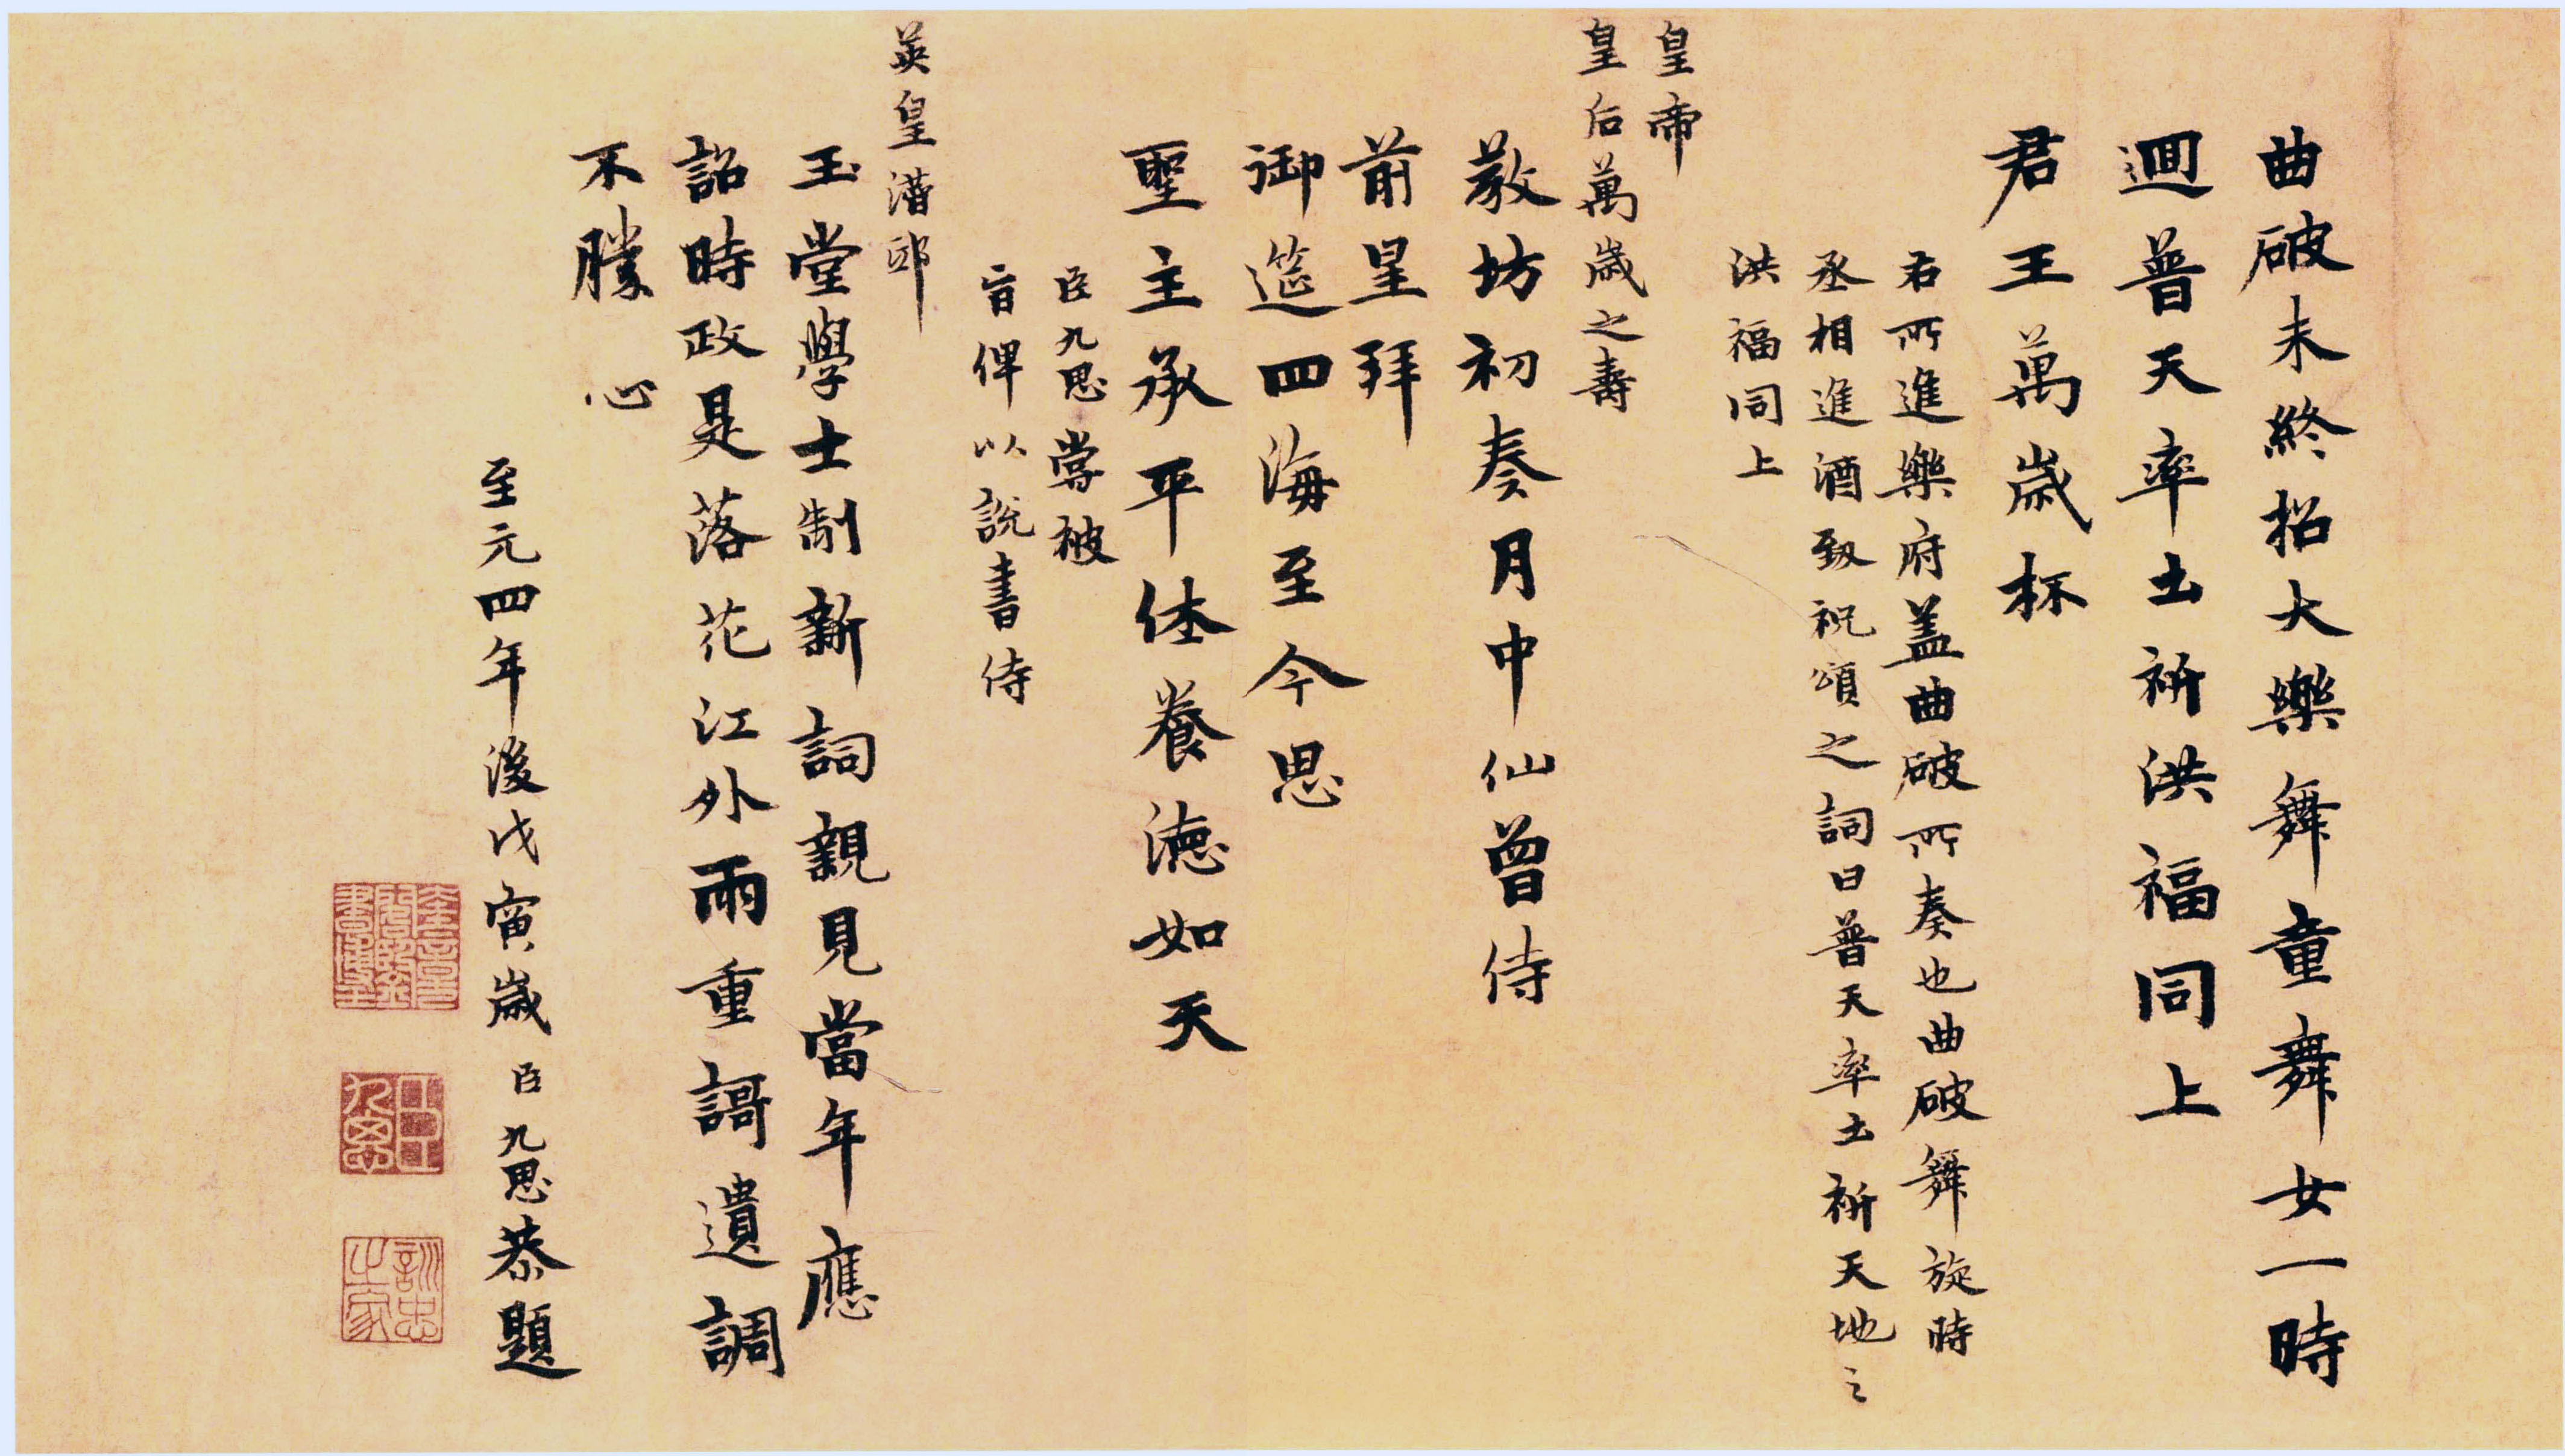 曲破未終招大樂舞童舞女一時
迴普天率土祈洪福同上
君王萬歲杯
右所進樂府蓋曲破所奏也曲破舞旋時
丞相進酒致祝頌之詞曰普天率土祈天地之
洪福同上
皇帝
皇后萬歲之壽
教坊初奏月中仙曾侍
前星拜
御筵四海至今思
聖主承平休養德如天
臣九思嘗被
旨俾以說書侍
英皇潛邸
玉堂學士制新詞親見當年應
詔時政是落花江外雨重謌遺調
不勝心
至元四年後戊寅歲臣九思恭題
奎章閣鑒書博士
臣九思
訓忠之家